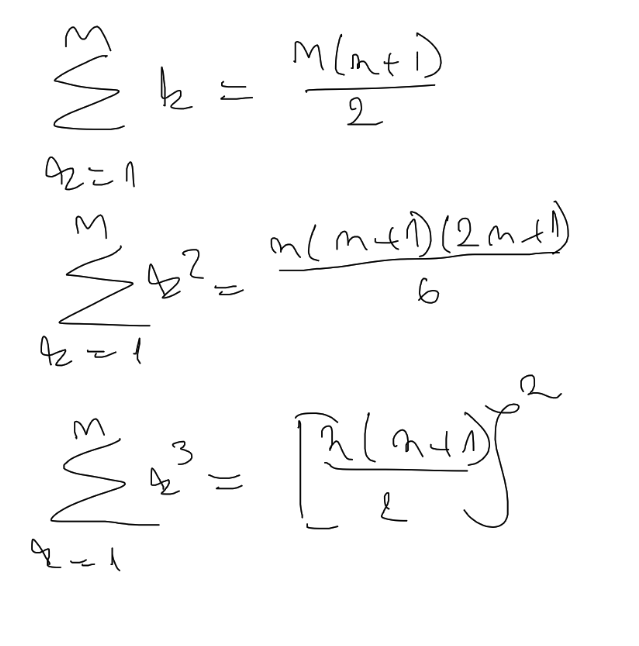 \sum_{k=1}^{n} k = \frac{n(n+1)}{2}
\sum_{k=1}^{n} k^2 = \frac{n(n+1)(2n+1)}{6}
\sum_{k=1}^{n} k^3 = \left[\frac{n(n+1)}{2}\right]^2